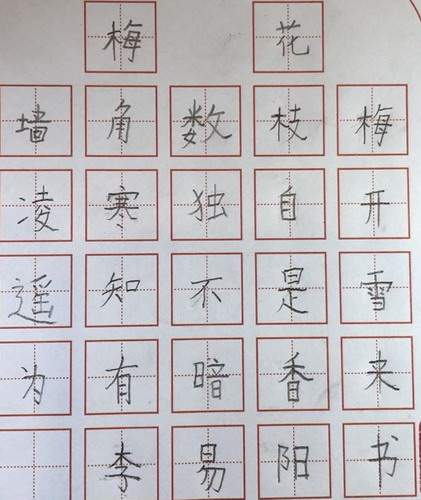 梅花
墙角数枝梅
凌寒独自开
遥知不是雪
为有暗香来
李易阳书